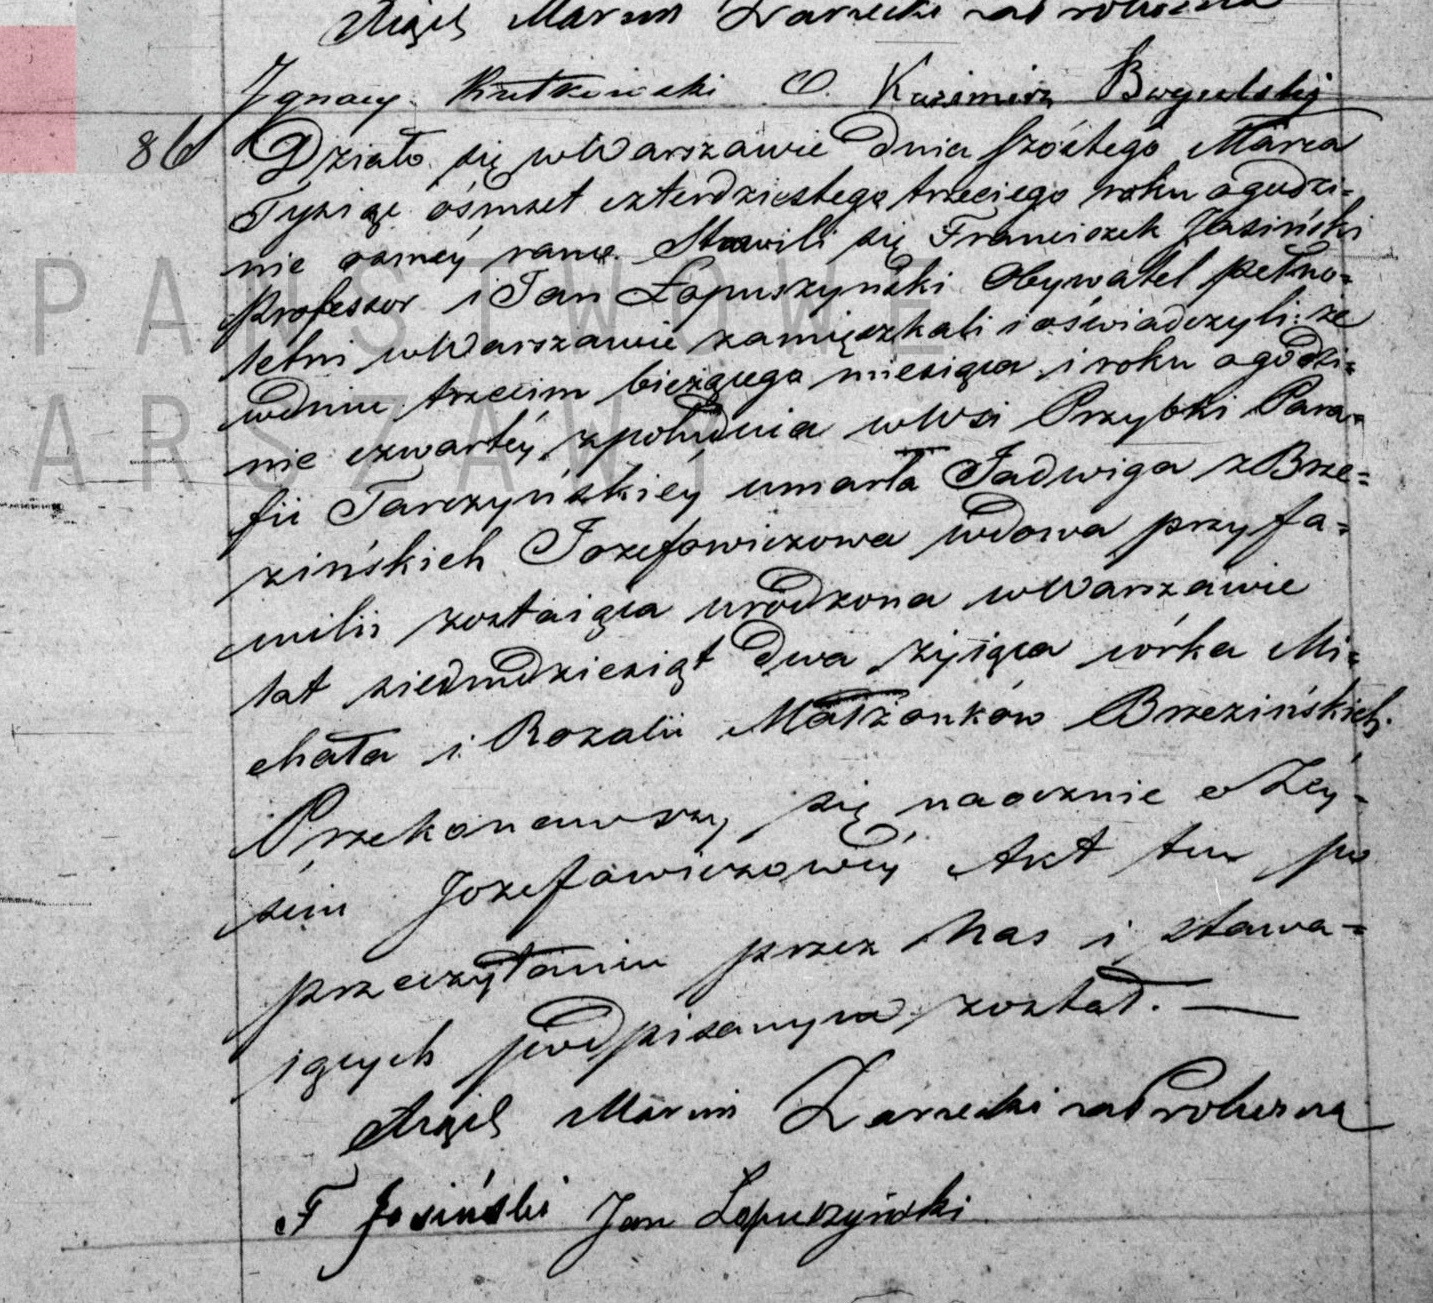 Xiądz Marcin Zarzecki za Proboszcza
Ignacy Rutkowski Kazimierz
86 Działo się w Warszawie dnia szóstego Marca
Tysiąc ośmset czterdziestego trzeciego roku o godzi=
nie osméy rano. Stawili się Franciszek Jasiński
Professor i Jan Łopuszyński Obywatel pełno=
letni w Warszawie zamięszkali i oświadczyli: że
w dniu trzecim bieżącego miesiąca i roku o godzi=
nie czwartéy z południa w Wsi Przybki Para=
fii Tarczyńskiéy umarła Jadwiga z Brze=
zińskich Jozefowiczowa wdowa przy fa=
milii zostaiąca urodzona w Warszawie
lat siedmdziesiąt dwa żyiąca córka Mi=
chała i Rozalii Małżonków Brzezińskich.
Przekonawszy się naocznie o Zéy=
ściu Jozefowiczowéy Akt ten po
przeczytaniu przez Nas i stawa=
iących podpisanym został. —
Xiądz Marcin Zarzecki za Proboszcza
F Jasiński Jan Łopuszyński
PAŃSTWOWE
ARSZAW